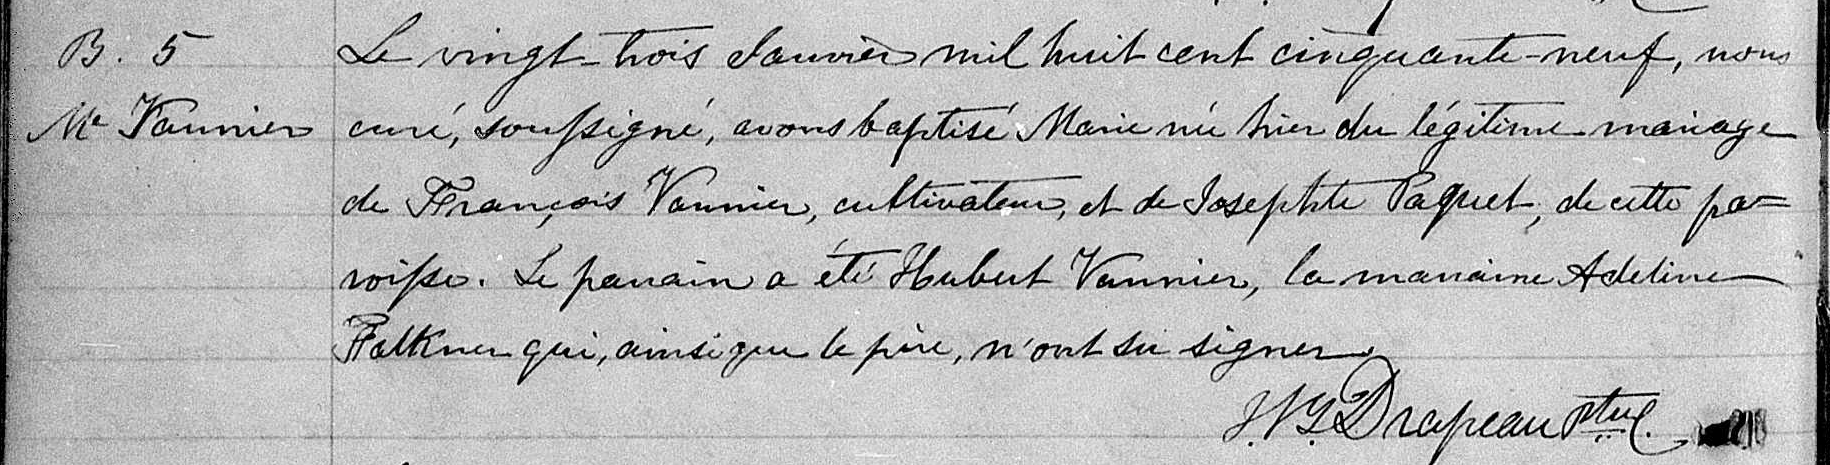 B. 5
Me Vannier
Le vingt-trois Janvier mil huit cent cinquante-neuf, nous
curé, soussigné, avons baptisé Marie née hier du légitime mariage
de François Vannier, cultivateur, et de Josephte Paquet, de cette pa=
roisse. Le parrain a été Hubert Vannier, la marraine Adeline
Falkner qui, ainsi que le père, n'ont su signer
Drapeau Ptre